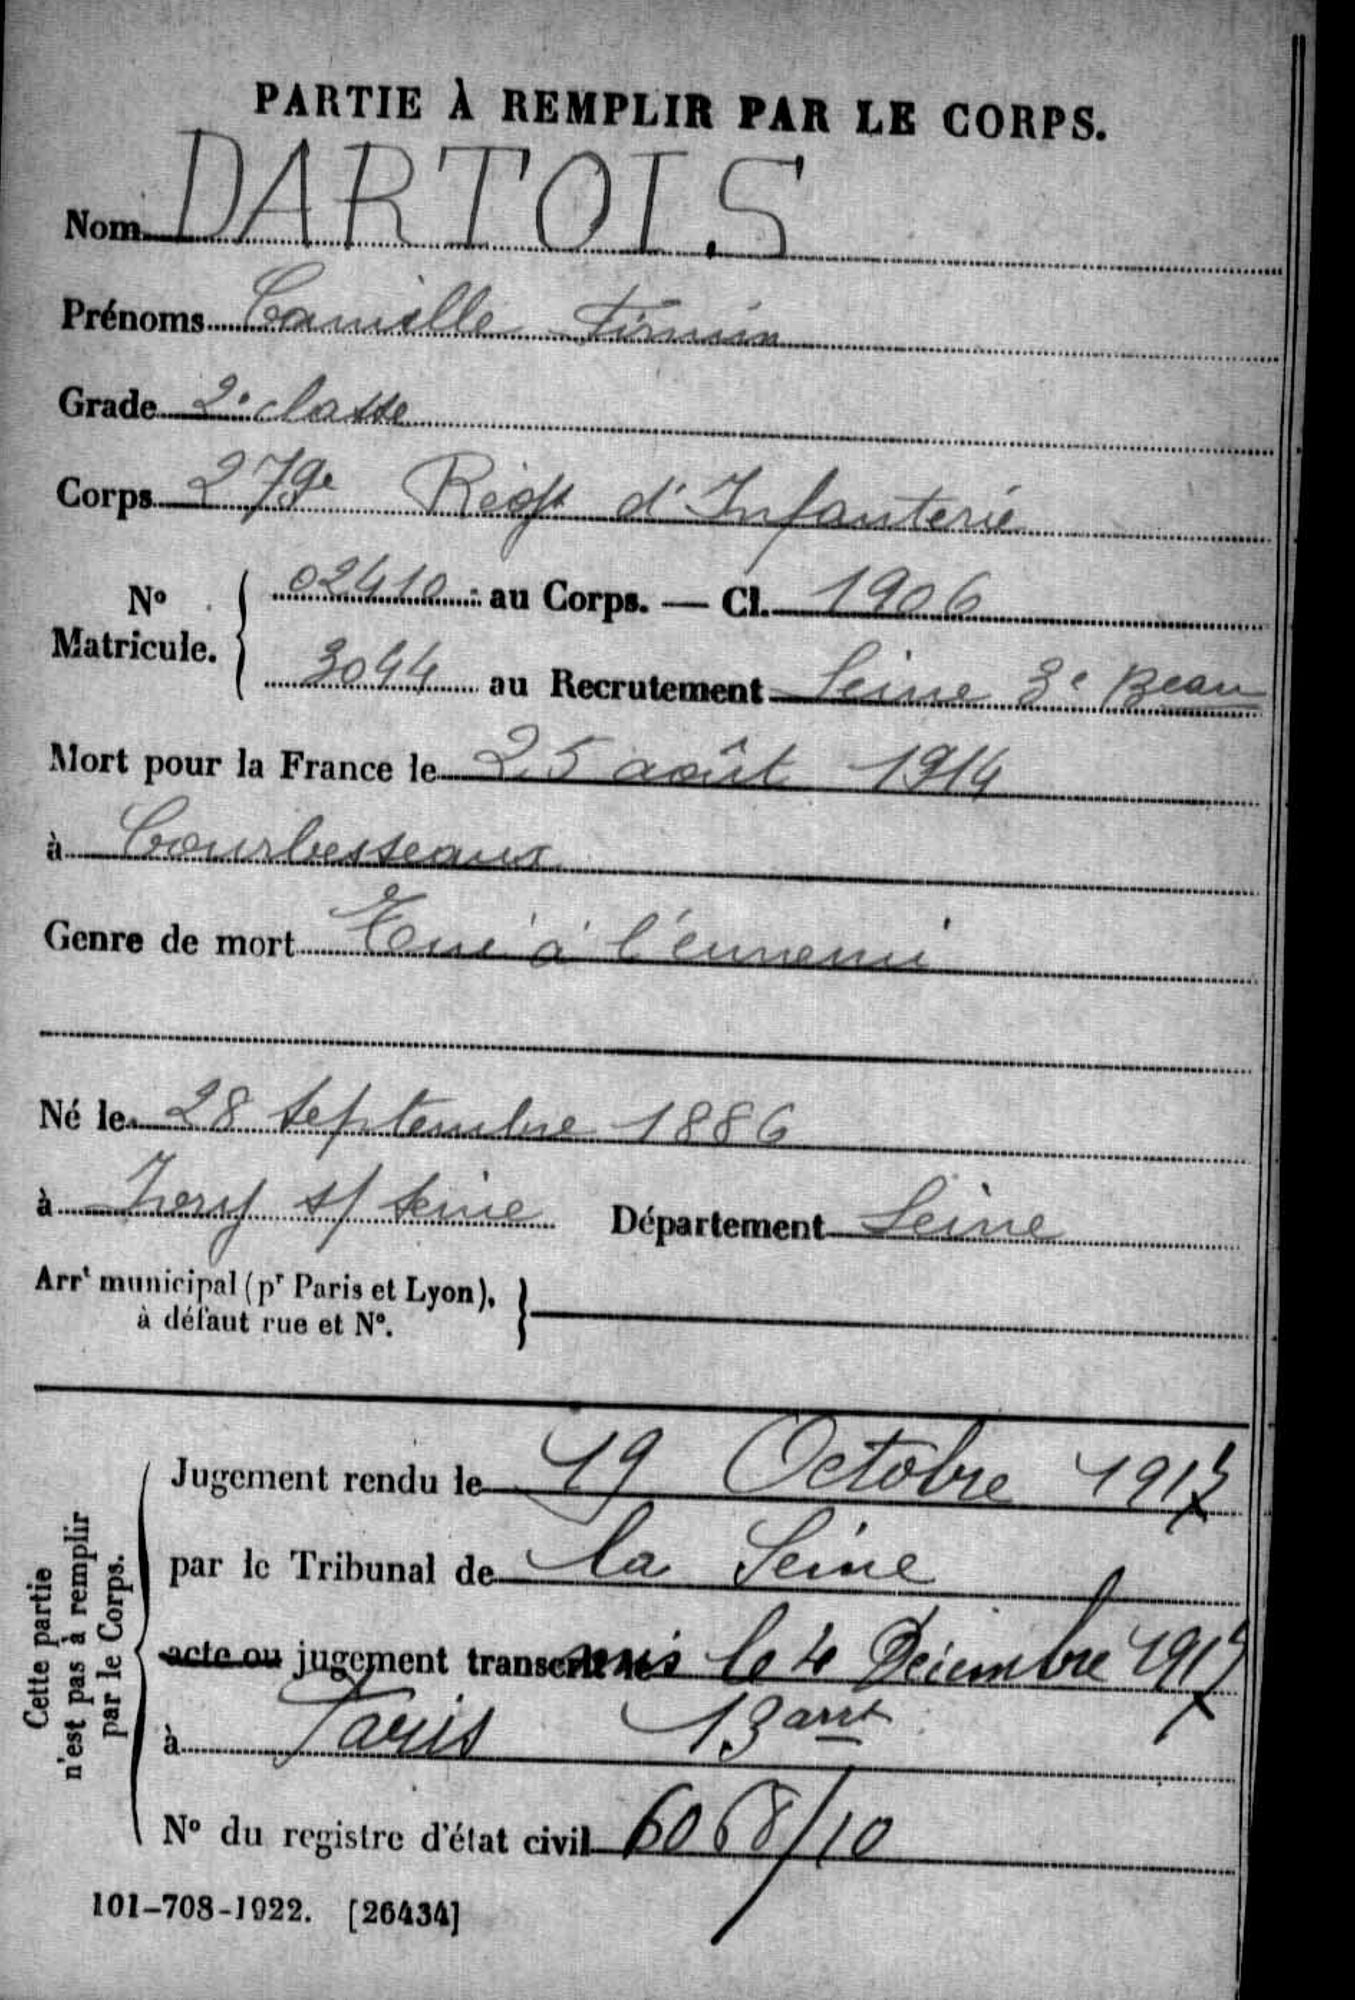 PARTIE À REMPLIR PAR LE CORPS.
Nom DARTOIS
Prénoms Camille Firmin
Grade 2e classe
Corps 279e Régt d'Infanterie
No Matricule.
02410 au Corps. — Cl. 1906
3044 au Recrutement Seine 3e Beau
Mort pour la France le 25 août 1914
à Courbesseaux
Genre de mort Tué à l'ennemi
Né le 28 septembre 1886
à Ivry s/ Seine Département Seine
Arrt municipal (pr Paris et Lyon),
à défaut rue et No.
Cette partie
n'est pas à remplir
par le Corps.
Jugement rendu le 19 Octobre 1917
par le Tribunal de la Seine
acte ou jugement transcrit le mis le 4 Décembre 1917
à Paris 13 arrt
No du registre d'état civil 6068/10
101-708-1922. [26434]